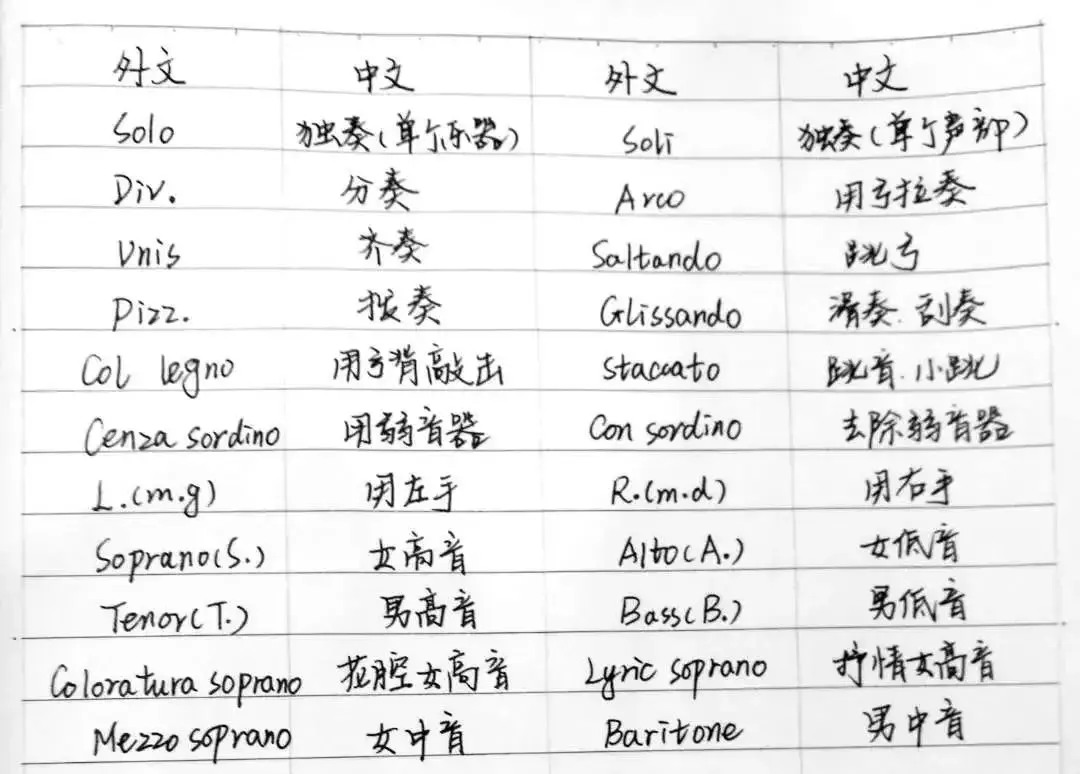 外文 中文 外文 中文
Solo 独奏(单个乐器) Soli 独奏(单个声部)
Div. 分奏 Arco 用弓拉奏
Unis 齐奏 Saltando 跳弓
Pizz. 拨奏 Glissando 滑奏.刮奏
Col legno 用弓背敲出 Staccato 跳音.小跳
Cenza sordino 用弱音器 Con sordino 去除弱音器
L.(m.g) 用左手 R.(m.d) 用右手
Soprano(S.) 女高音 Alto(A.) 女低音
Tenor(T.) 男高音 Bass(B.) 男低音
Coloratura soprano 花腔女高音 Lyric soprano 抒情女高音
Mezzo soprano 女中音 Baritone 男中音